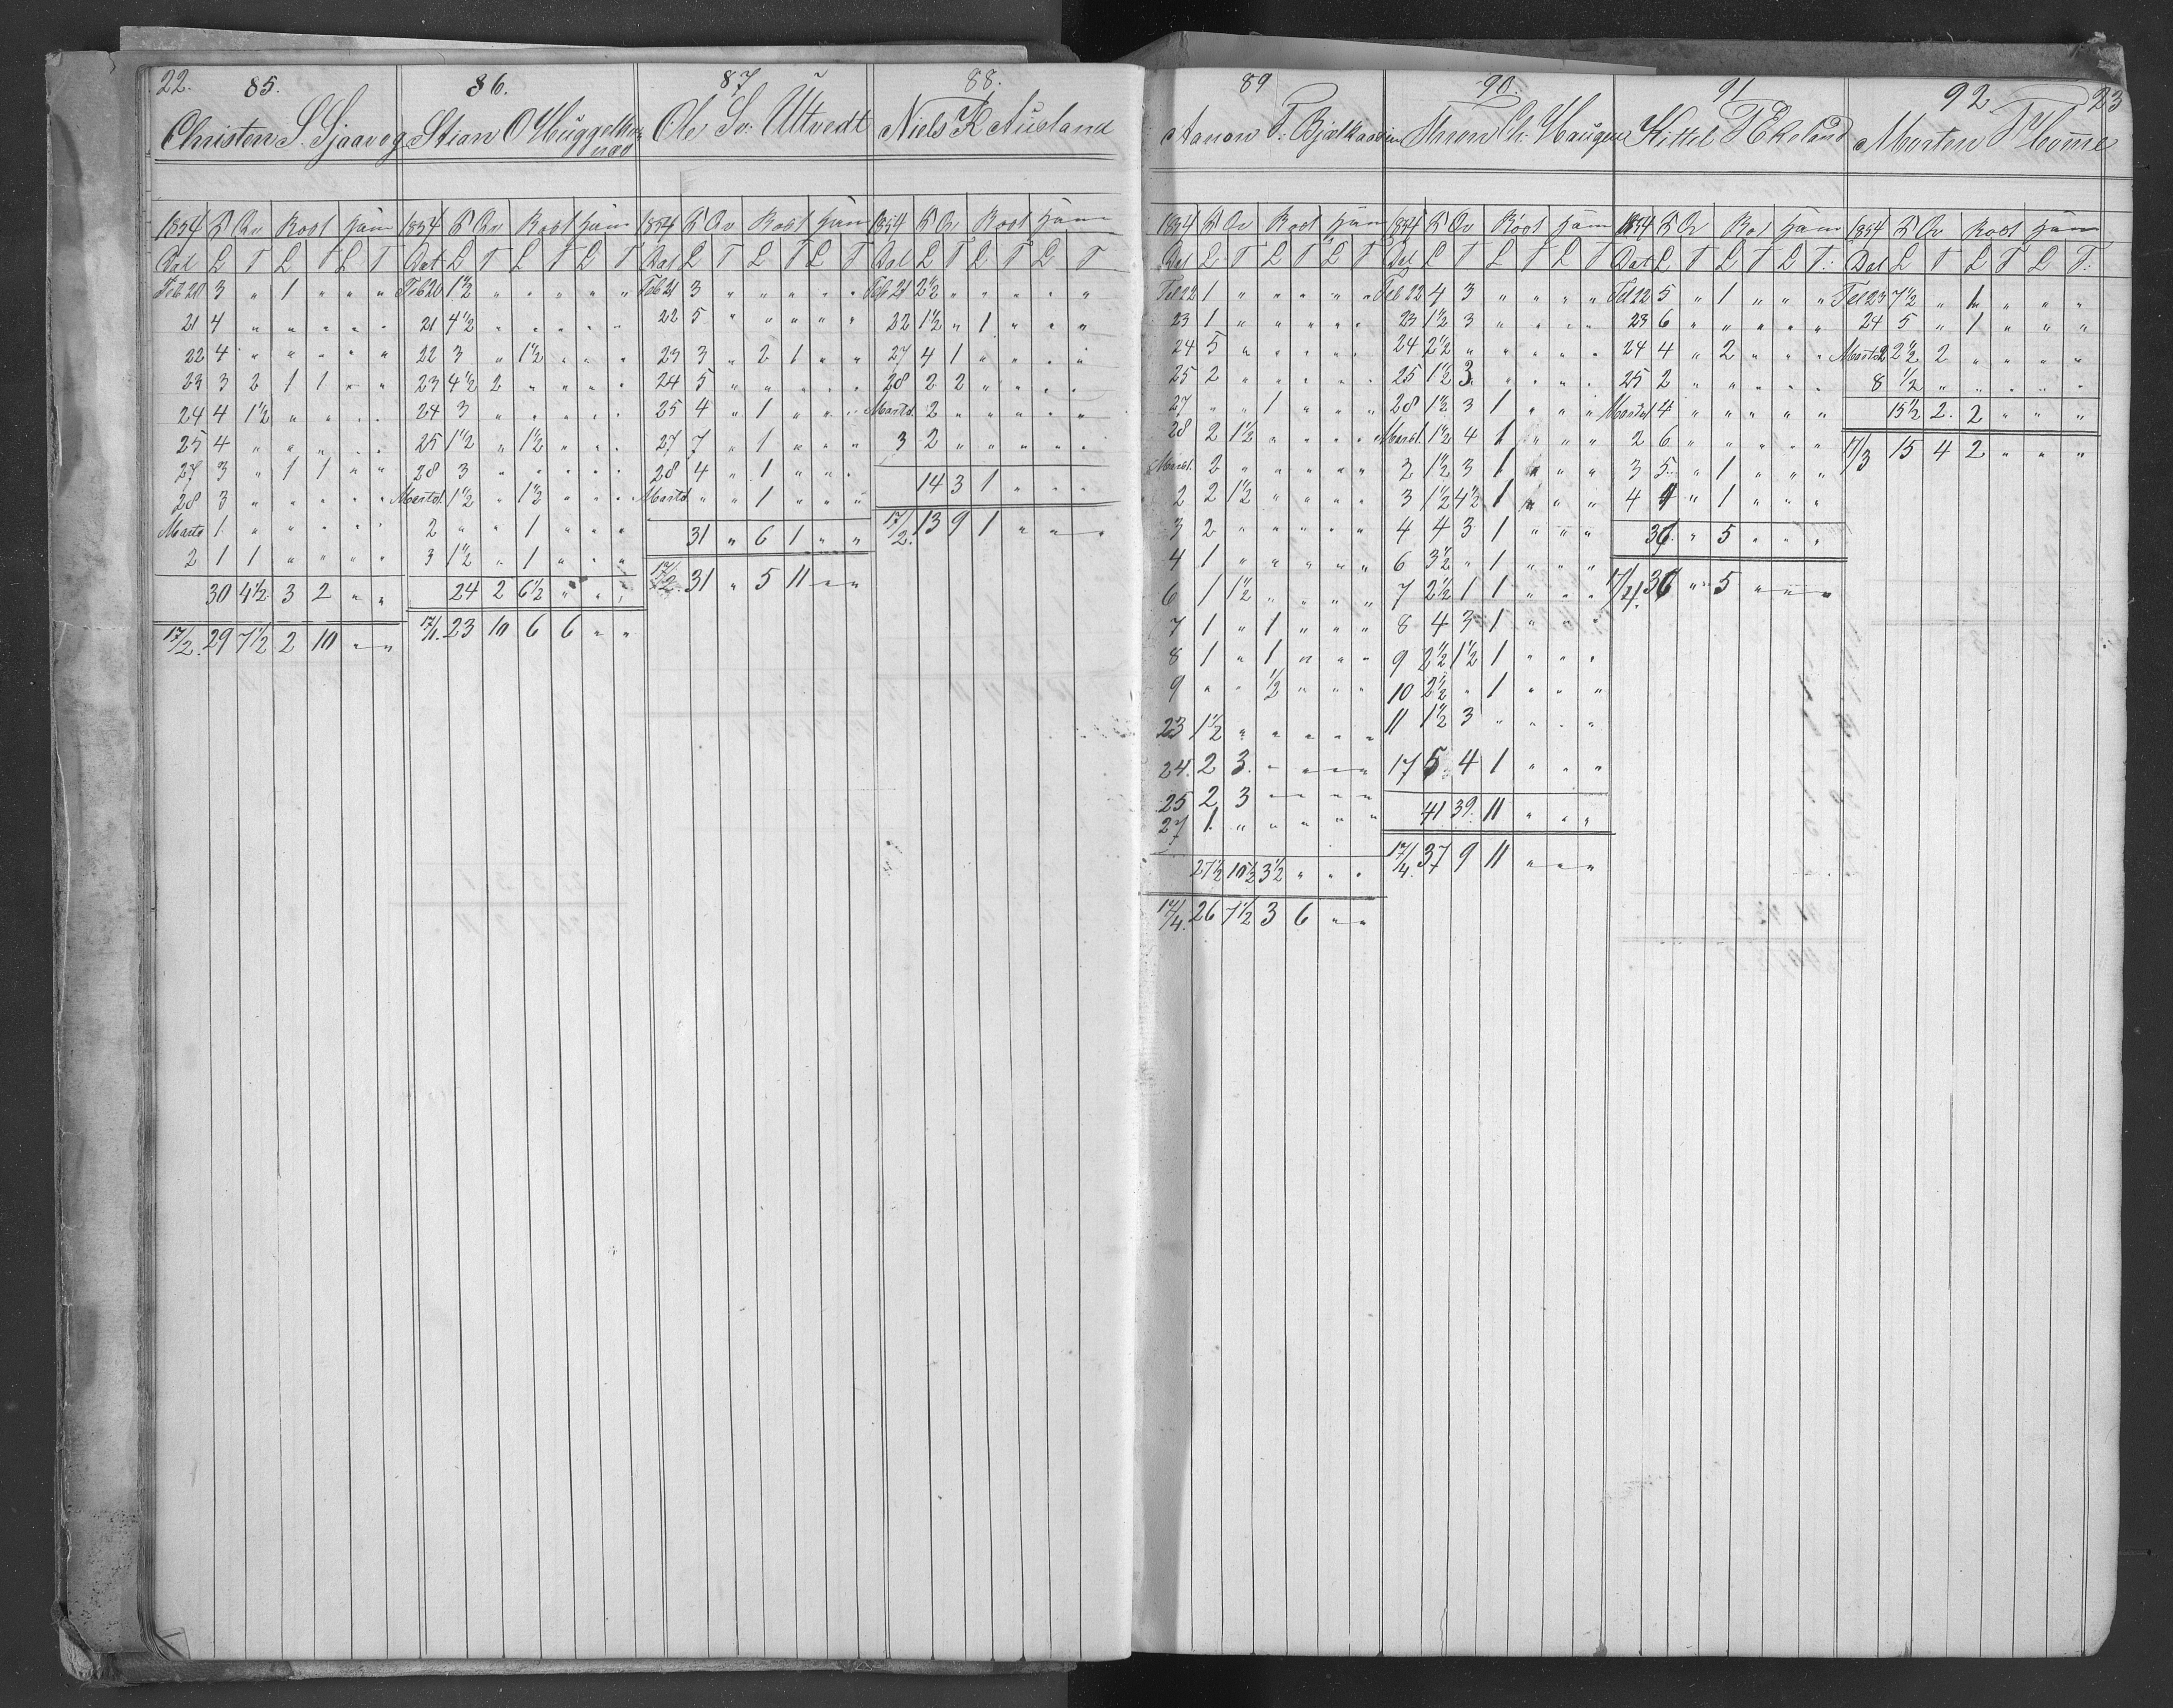 22.
85.
Christen S. Sjaaveg
1854 Kv Rost Häm
Dat L T L T L T
Feb 20 3 " 1 " " "
21 4 " " " " "
22 4 " " " " "
23 3 2 1 1 " "
24 4 1½ " " " "
25 4 " " " " "
27 3 " 1 1 " "
28 3 " " " " "
Marts 1 " " " " "
2 1 1 " " " "
30 4½ 3 2 " "
17/2. 29 7½ 2 10 " "
86.
Stian O
1854 Kv Rost Häm
Dat L T L T L T
Feb 20 1½ " " " " "
21 4½ " " " " "
22 3 " 1½ " " "
23 4½ 2 " " " "
24 3 " " " " "
25 1½ " 1½ " " "
28 3 " " " " "
Marts 1. 1½ " 1½ " " "
2 " " 1 " " "
3 1½ " 1 " " "
24 2 6½ " " "
17/1. 23 10 6 6 " "
87
Ole Sv: Ũltvedt
1854 Kv Rost Häm
Dat L T L T L T
Feb 21 3 " " " " "
22 5 " " " " "
23 3 " 2 1 " "
24 5 " " " " "
25 4 " 1 " " "
27 7 " 1 " " "
28 4 " 1 " " "
Marts 1 " " 1 " " "
31 " 6 1 " "
17/2. 31 " 5 11 " "
88.
Niels K Ausland
1854 Kv Rost Häm
Dat L T L T L T
Feb 21 2½ " " " " "
22 1½ " 1 " " "
27 4 1 " " " "
28 2 2 " " " "
Marts 1. 2 " " " " "
3 2 " " " " "
14 3 1 " " "
17/2. 13 9 1 " " "
89
Aanon T:
1854 Kv Rost Häm
Dat L T L T L T
Feb 22 1 " " " " "
23 1 " " " " "
24 5 " " " " "
25 2 " " " " "
27 " " 1 " " "
28 2 1½ " " " "
Marts 1. 2 " " " " "
2 2 1½ " " " "
3 2 " " " " "
4 1 " " " " "
6 1 1½ " " " "
7 1 " 1 " " "
8 1 " 1 " " "
9 " " ½ " " "
23 1½ " " " " "
24. 2 3. " " " "
25 2 3 " " " "
27 1. " " " " "
27½ 10½ 3½ " " "
17/4. 26 7½ 3 6 " "
90.
Thron Ch: Haugen
1854 Kv Rost Häm
Dat L T L T L T
Feb 22 4 3 " " " "
23 1½ 3 " " " "
24 2½ " " " " "
25 1½ 3. " " " "
28 1½ 3 1 " " "
Marts 1. 1½ 4 1 " " "
2 1½ 3 1 " " "
3 1½ 4½ 1 " " "
4 4 3 1 " " "
6 3½ " 1 " " "
7 2½ 1 1 " " "
8 4 3 1 " " "
9 2½ 1½ 1 " " "
10 2½ " 1 " " "
11 1½ 3 " " " "
17 5 4 1 " " "
41 39. 11 " " "
17/4. 37 9 11 " " "
91
Kittil T Ekeland
1854 Kv Rost Häm
Dat L T L T L T:
Feb 22 5 " 1 " " "
23 6 " " " " "
24 4 " 2 " " "
25 2 " " " " "
Marts 1 4 " " " " "
2 6 " " " " "
3 5 " 1 " " "
4 4 " 1 " " "
36. " 5 " " "
17/4. 36 " 5 " " "
92
23
Morten T Homme
1854 Kv Rost Häm
Dat L T L T L T:
Feb 23 7½ " 1 " " "
24 5 " 1 " " "
Marts 2 2½ 2 " " " "
8 ½ " " " " "
15½ 2. 2 " " "
17/3 15 4 2 " " "